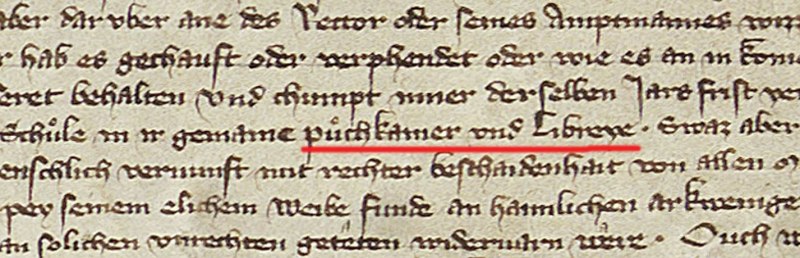 aber dar vber ane des Rector oder seines Amptmannes
hab es gechauft oder verphendet oder wie es an in
behalten vnd chumpt inner derselben Jars frist
Schůle in ir gemaine půchkamer vnd Libreye. Swaz aber
vernunft mit rechter beschaidenhait von allen
pey seinem elichem weibe funde an haimlichen
an solichen vnrechten geteten widervarn were. Ouch